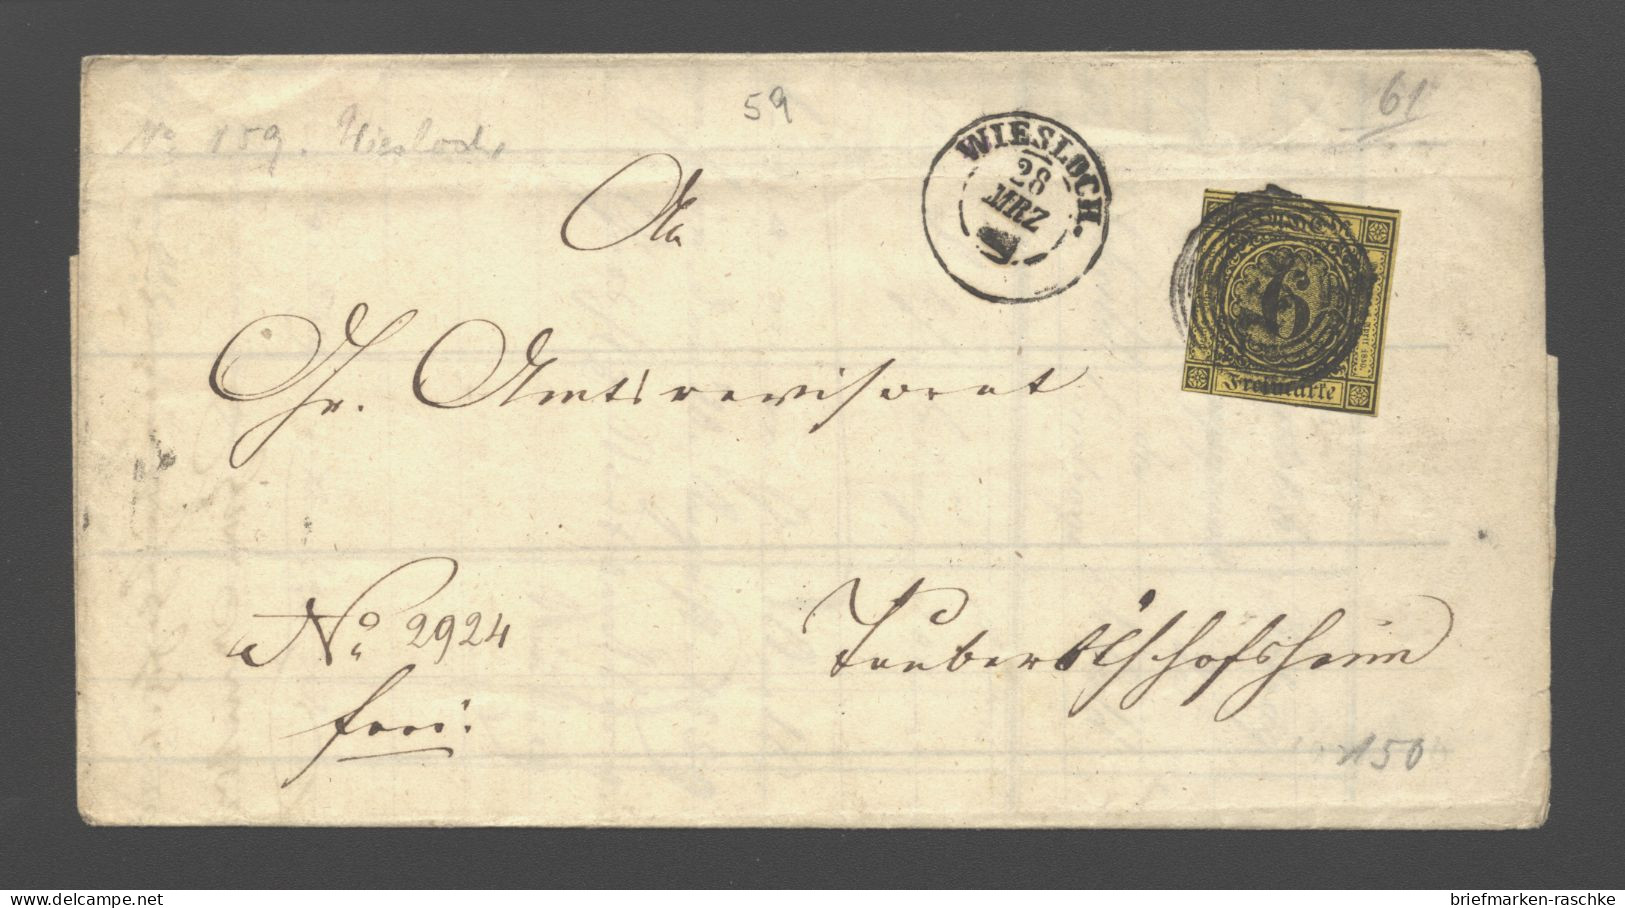 59
61
No 159. Wiesloch
WIESLOCH.
28
MRZ
6
Freimarke
An
Gr. Amtsrevisorat
No. 2924
Tauberbischofsheim
frei.
150
briefmarken-raschke